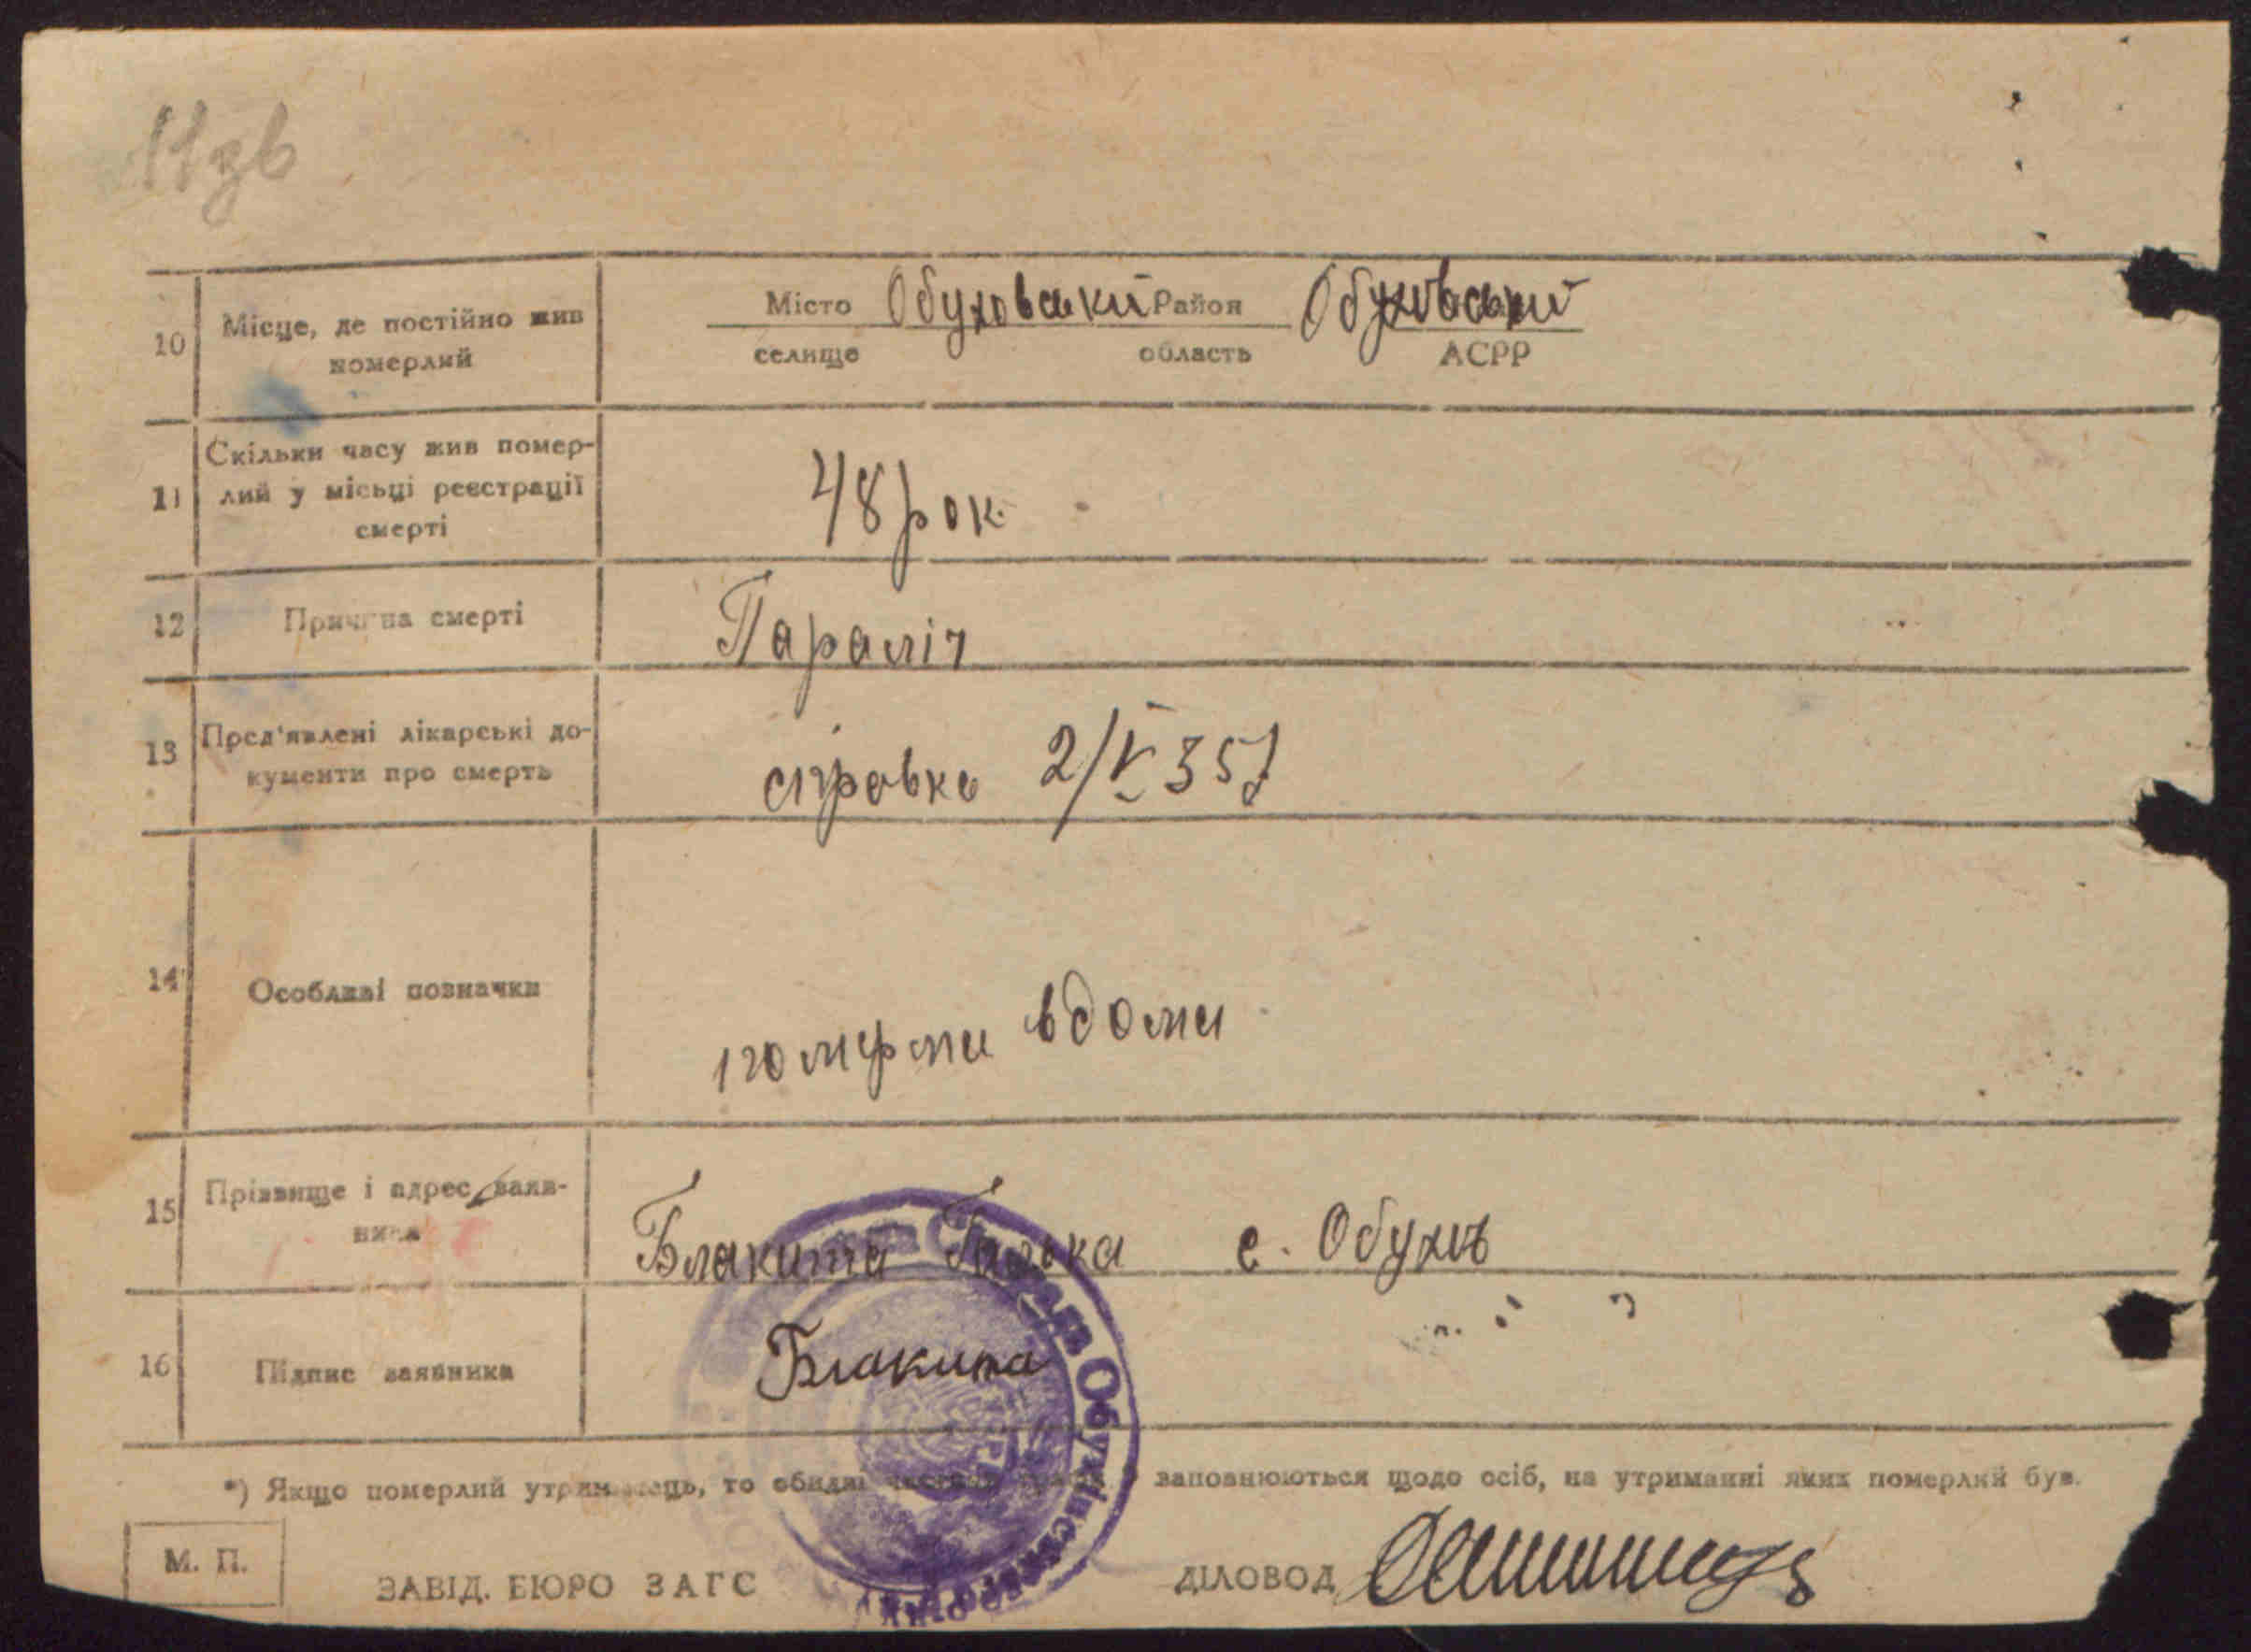 11зв
10 Місце, де постійно жив померлий
Місто Обуховский Район Обуховский
селище область АСРР
11 Скільки часу жив помер-
лий у місьці реєстрації
смерті
48 рок.
12 Причина смерті Параліч
13 Пред'явлені лікарські до-
кументи про смерть
справка 2/V 35
14 Особливі позначки
вдоми
15 Прізвище і адрес заяв-
ника
Блакита Галька с. Обухів
16 Підпис заявника Блакита
*) Якщо померлий утриманець, то обидві заповнюються щодо осіб, на утриманні яких померлий був.
М. П.
ЗАВІД. БЮРО ЗАГС ДІЛОВОД